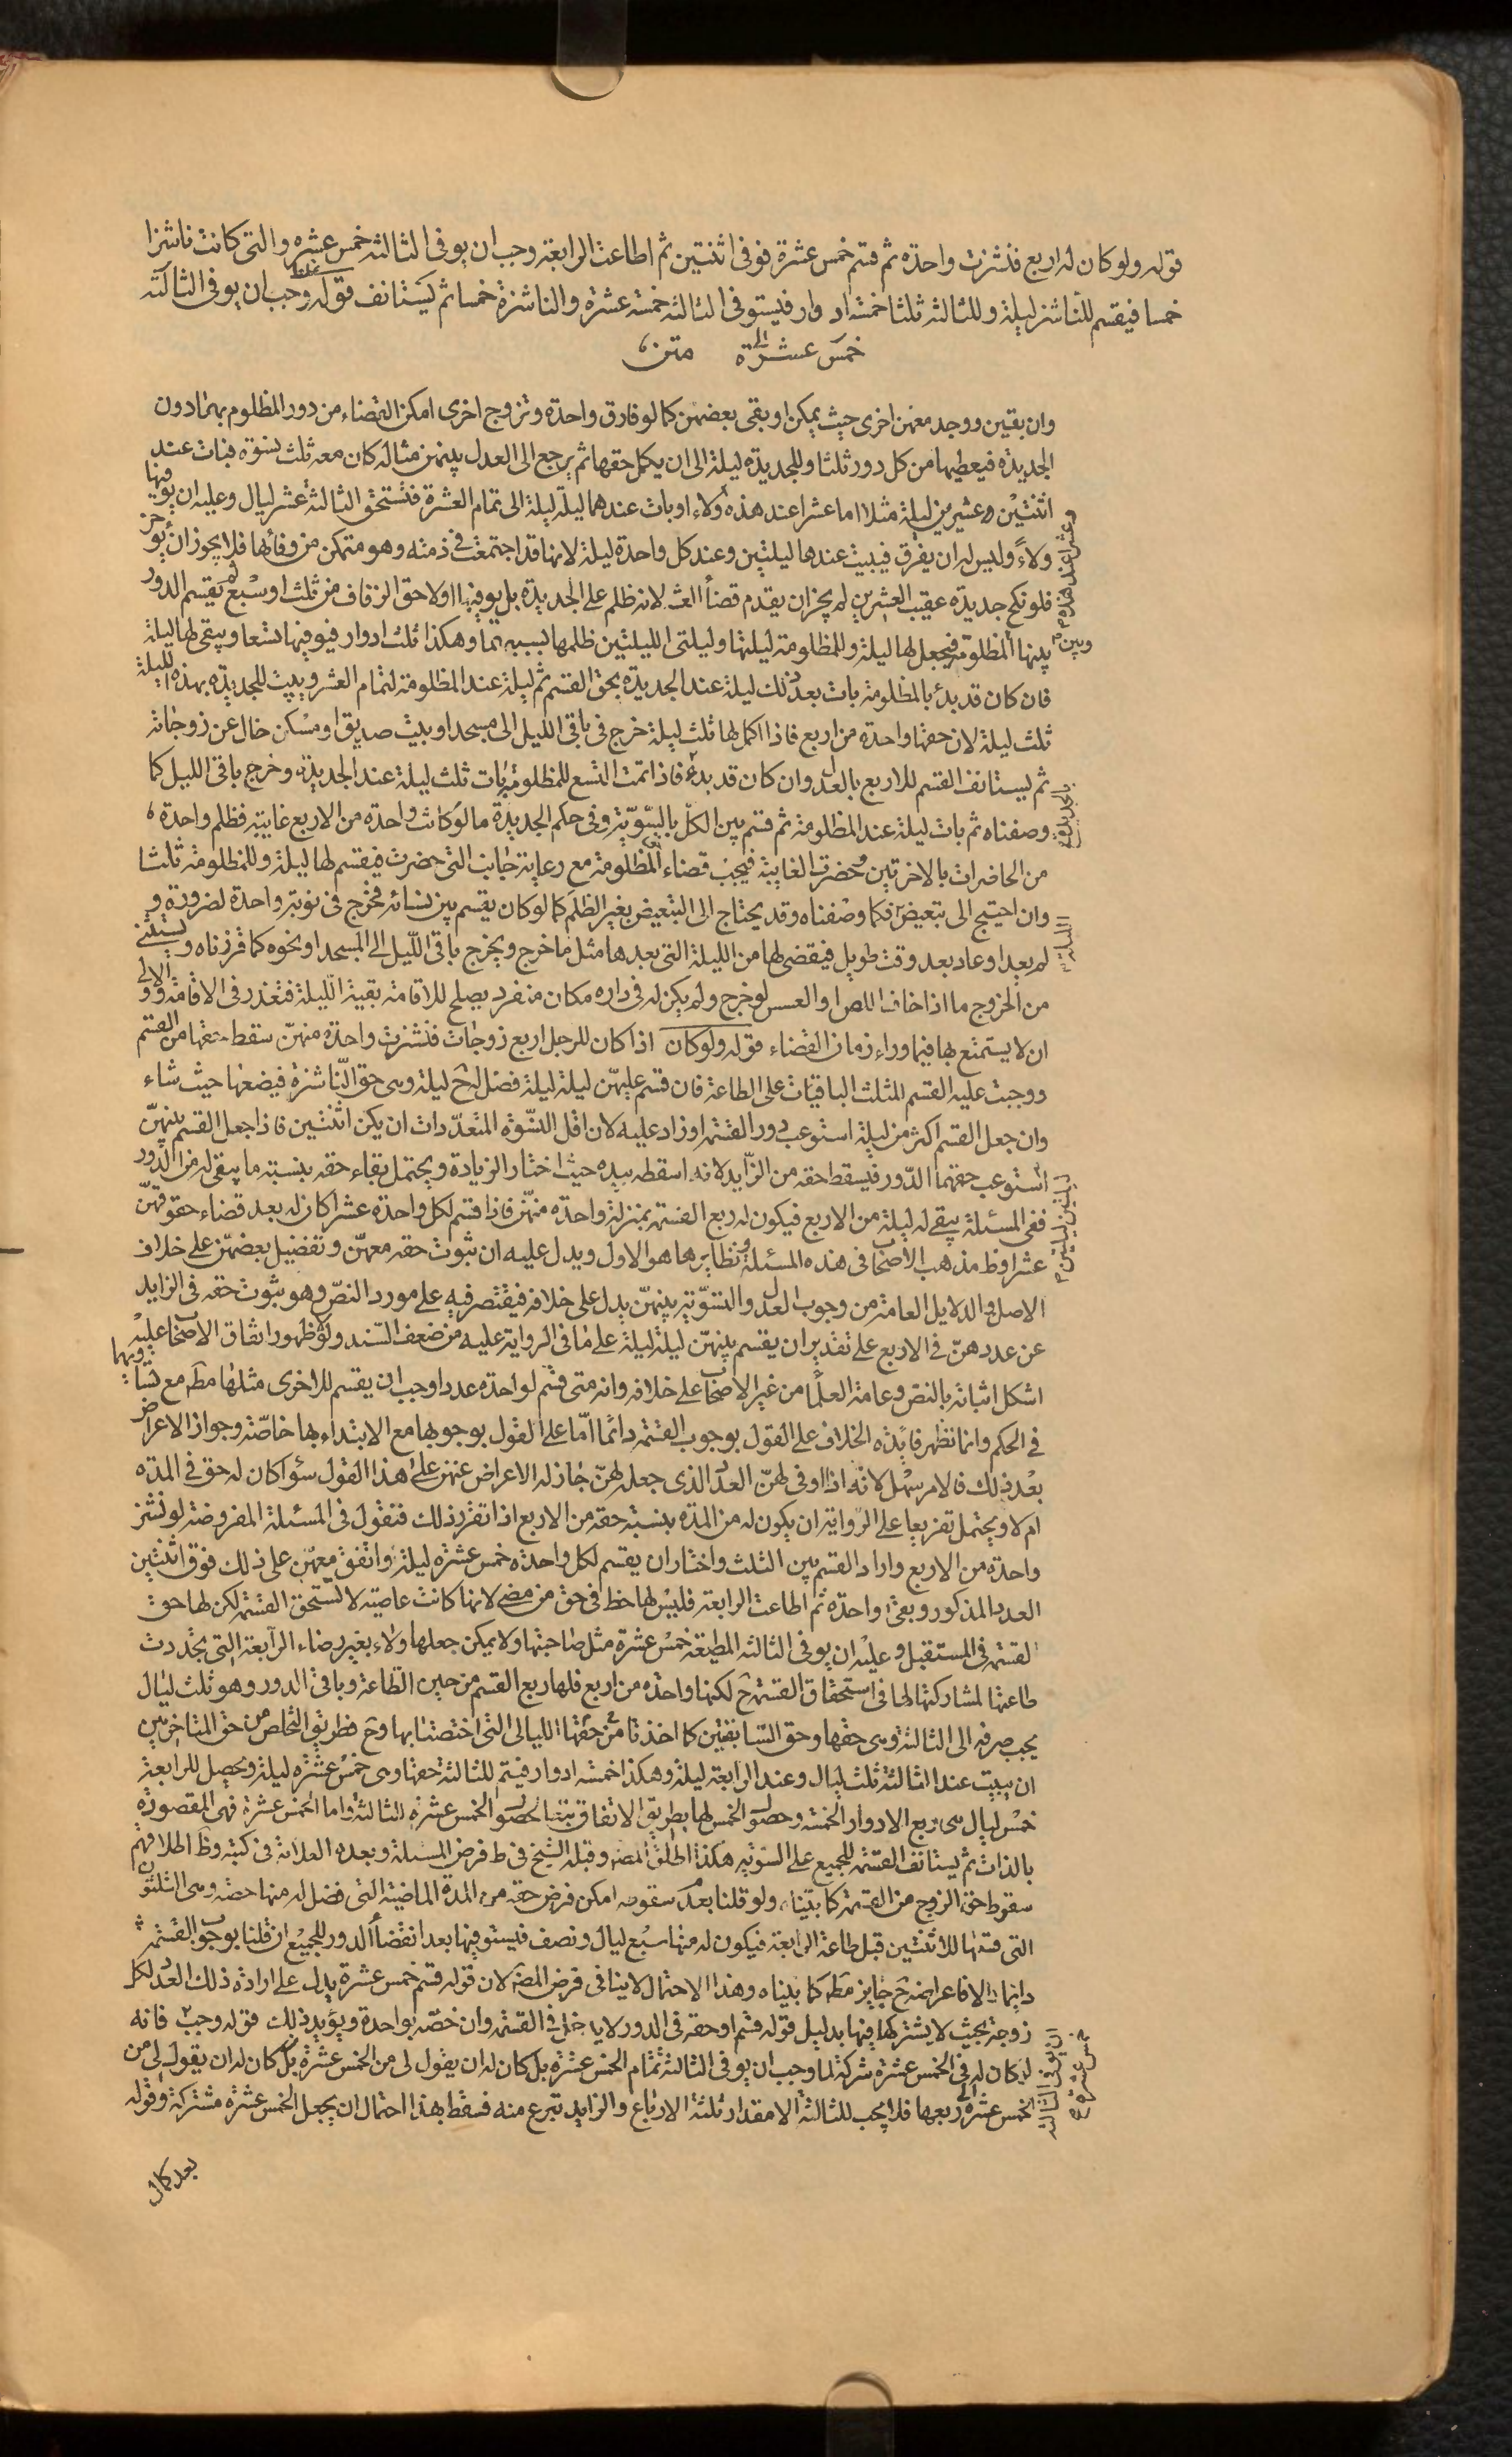 قوله ولو كان له اربع فنشزت واحدة ثم قسم خمس عشرة فوفى اثنتين ثم اطاعت الرابعة وجب ان يوفى الثالثة خمس عشرة والتى كانت ناشزا
خمسا فيقسم للناشز ليلة وللثالثة ثلثا خمسة ادوار فيستوفى الثالثة خمسة عشرة والناشزة خمسا ثم يستانف قوله وجب ان يوفى الثالثة
خمس عشرة الى متن
وان بقين ووجد معهن اخرى حيث يمكن او بقى بعضهن كما لو فارق واحدة وتزوج اخرى امكن القضاء من دور المظلوم بها دون
الجديدة فيعطيها من كل دور ثلثا وللجديدة ليلة الى ان يكمل حقها ثم يرجع الى العدل بينهن مثاله كان معه ثلث نسوة فبات عند
اثنتين عشرين ليلة مثلا اما عشرا عند هذه ولاء او بات عندهما ليلة ليلة الى تمام العشرة فتستحق الثالثة عشر ليال وعليه ان يوفيها
ولاءً وليس له ان يفرق فيبيت عندها ليلتين وعند كل واحدة ليلة لانها قد اجتمعت فى ذمته وهو متمكن من وفائها فلا يجوز ان يؤخر
فلو نكح جديدة عقيب العشرين لم يجز ان يقدم قضاء الث لانه ظلم على الجديدة بل يوفيها اولا حق الزفاف من ثلث او سبع ثم يقسم الدور
بينها وبين المظلومة فيجعل لها ليلة وللمظلومة ليلتها وليلتى الليلتين ظلمها بسببهما وهكذا ثلث ادوار فيوفيها تسعا ويبقى لها ليلة
فان كان قد بدئ بالمظلومة بات بعد ذلك ليلة عند الجديدة بحق القسم ثم ليلة عند المظلومة لتمام العشر ويبيت للجديدة بهذه الليلة
ثلث ليلة لان حقها واحدة من اربع فاذا اكمل لها ثلث ليلة خرج فى باقى الليل الى مسجد او بيت صديق او مسكن خال عن زوجاته
ثم يستانف القسم للاربع بالعدل وان كان قد بدئ بالجديدة فاذا تمت التسع للمظلومة بات ثلث ليلة عند الجديدة وخرج باقى الليل كما
وصفناه ثم بات ليلة عند المظلومة ثم قسم بين الكل بالسوية وفى حكم الجديدة ما لو كانت واحدة من الاربع غايبة فظلم واحدة
من الحاضرات بالاخرتين وحضرت الغايبة فيجب قضاء المظلومة مع رعاية جانب التى حضرت فيقسم لها ليلة وللمظلومة ثلثا
وان احتيج الى تبعيض الليلة فكما وصفناه وقد يحتاج الى التبعيض بغير الظلم كما لو كان يقسم بين نسائه فخرج فى نوبة واحدة لضرورة و
لم يعد او عاد بعد وقت طويل فيقضى لها من الليلة التى بعدها مثل ما خرج ويخرج باقى الليل الى المسجد او نحوه كما قررناه ويستثنى
من الخروج ما اذا خاف اللص او العسس لو خرج ولم يكن له فى داره مكان منفرد يصلح للاقامة بقية الليلة فتعذر فى الاقامة والاولى
ان لا يستمتع بها فيما وراء زمان القضاء قوله ولو كان اذا كان للرجل اربع زوجات فنشزت واحدة منهن سقط حقها من القسم
ووجبت عليه القسم للثلث الباقيات على الطاعة فان قسم عليهن ليلة ليلة فضل له ح ليلة وهى حق الناشزة فيضعها حيث شاء
وان جعل القسم اكثر من ليلة استوعب دور القسمة او زاد عليه لان اقل النسوة المتعددات ان يكن اثنتين فاذا جعل القسم بينهن
ليلتين ليلتين استوعب حقهما الدور فيسقط حقه من الزايد لانه اسقطه بيده حيث اختار الزيادة ويحتمل بقاء حقه بنسبة ما يبقى له من الدور
ففى المسئلة يبقى له ليلة من الاربع فيكون له ربع القسمة بمنزلة واحدة منهن فاذا قسم لكل واحدة عشرا كان له بعد قضاء حقوقهن
عشرا وظ مذهب الاصحاب فى هذه المسئلة ونظايرها هو الاول ويدل عليه ان ثبوت حقه معهن وتفضيل بعضهن على خلاف
الاصل والدلايل العامة من وجوب العدل والتسوية بينهن يدل على خلافه فيقتصر فيه على مورد النص وهو ثبوت حقه فى الزايد
عن عددهن فى الاربع على تقدير ان يقسم بينهن ليلة ليلة على ما فى الرواية عليه من ضعف السند ولولا ظهور اتفاق الاصحاب عليه
اشكل اثباته بالنص وعامة العلما من غير الاصحاب على خلافه وانه متى قسم لواحدة عددا وجب ان يقسم للاخرى مثلها مط مع تساويهما
فى الحكم وانما تظهر فائدة الخلاف على القول بوجوب القسمة دائما اما على القول بوجوبها مع الابتداء بها خاصة وجواز الاعراض
بعد ذلك فالامر سهل لانه اذا اوفى لهن العدد الذى جعله لهن جاز له الاعراض عنهن على هذا القول سواء كان له حق فى المدة
ام لا ويحتمل تفريعا على الرواية ان يكون له من المدة بنسبة حقه من الاربع اذا تقرر ذلك فنقول فى المسئلة المفروضة لو نشز
واحدة من الاربع واراد القسم بين الثلث واختار ان يقسم لكل واحدة خمس عشرة ليلة واتفق معهن على ذلك فوفى اثنتين
العدد المذكور وبقى واحدة ثم اطاعت الرابعة فليس لها حظ فى حق من مضى لانها كانت عاصية لا تستحق القسمة لكن لها حق
القسمة فى المستقبل وعليه ان يوفى الثالثة المطيعة خمس عشرة مثل صاحبتها ولا يمكن جعلها ولاء بغير رضاء الرابعة التى تجددت
طاعتها لمشاركتها لها فى استحقاق القسمة ح لكنها واحدة من اربع فلها ربع القسم من حين الطاعة وباقى الدور وهو ثلث ليال
يجب صرفه الى الثالثة وهى حقها وحق السابقتين كما اخذتا من حقها الليالى التى اختصتا بها وح فطريق التخلص من حق المتاخرتين
ان يبيت عند الثالثة ثلث ليال وعند الرابعة ليلة وهكذا خمسة ادوار فيتم للثالثة حقها وهى خمس عشرة ليلة ويحصل للرابعة
خمس ليال هى ربع الادوار الخمسة وحصول الخمس لها بطريق الاتفاق تبعا لحصول الخمس عشرة للثالثة واما الخمس عشرة فهى المقصودة
بالذات ثم يستانف القسمة للجميع على السوية هكذا اطلق المص وقبله الشيخ فى ط فرض المسئلة وبعده العلامة فى كتبه وظ اطلاقهم
سقوط حق الزوج من القسمة كما بيناه ولو قلنا بعدم سقوطه امكن فرض حقه من المدة الماضية التى فضل له منها حصة وهى الثلثون
التى قسمها للاثنتين قبل طاعة الرابعة فيكون له منها سبع ليال ونصف فيستوفيها بعد انقضاء الدور للجميع ان قلنا بوجوب القسمة
دايما والا فاعراضه ح جايز مط كما بيناه وهذا الاحتمال لا ينافى فرض المص لان قوله قسم خمس عشرة يدل على ارادة ذلك العدد لكل
زوجة بحيث لا يشتركها فيها بدليل قوله قسم او حقه فى الدور لا يدخل فى القسمة وان خصه بواحدة ويؤيد ذلك قوله وجب ان يوفى الثالثة خمس عشرة فانه
لو كان له فى الخمس عشرة شركة لما وجب ان يوفى الثالثة تمام الخمس عشرة بل كان له ان يقول لى من الخمس عشرة بل كان له ان يقول لى من
الخمس عشرة ربعها فلا يجب للثالثة الا مقدار ثلثة الارباع والزايد تبرع منه فسقط بهذا احتمال ان يجعل الخمس عشرة مشتركة وقوله
بعد كمال